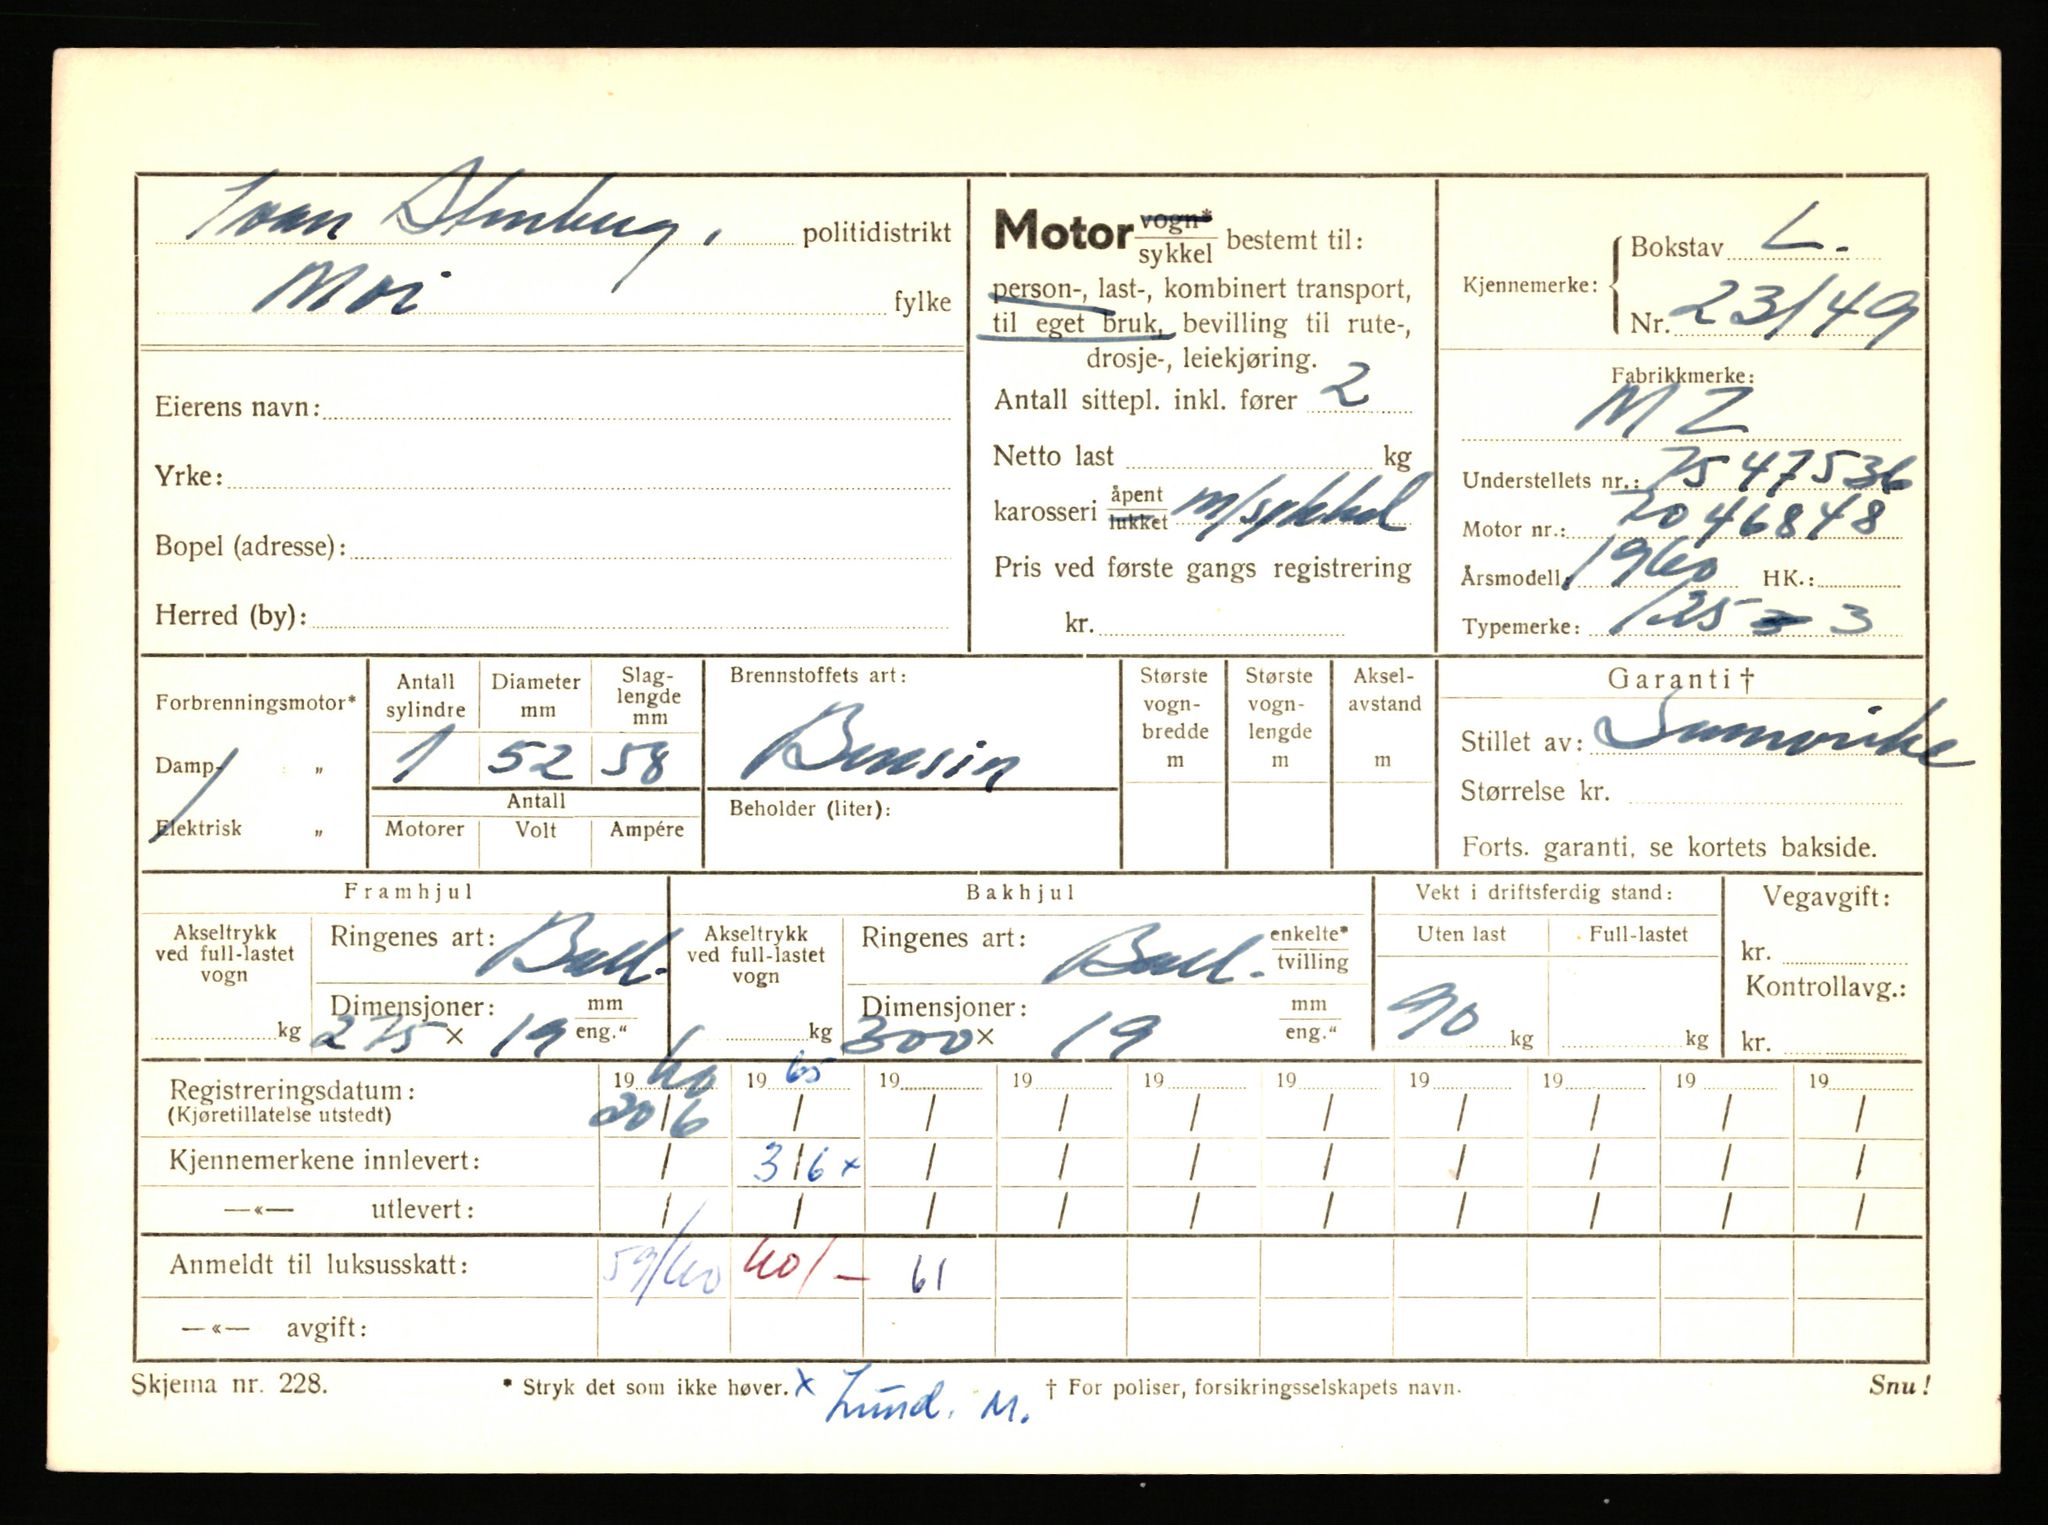 Ivan Stenberg, politidistrikt
Moi fylke
Eierens navn:
Yrke:
Bopel (adresse):
Herred (by):
Motor vogn* / sykkel bestemt til:
person-, last-, kombinert transport,
til eget bruk, bevilling til rute-,
drosje-, leiekjøring.
Antall sittepl. inkl. fører 2
Netto last kg
karosseri åpent / lukket m/sykkel
Pris ved første gangs registrering
kr.
Kjennemerke: Bokstav L.
Nr. 23149
Fabrikkmerke:
MZ
Understellets nr.: 7547536
Motor nr.: 7046848
Årsmodell: 1960 HK.:
Typemerke: 125 3
Forbrenningsmotor*
Damp- „
Elektrisk „
Antall sylindre
1
Diameter mm
52
Slag-
lengde
mm
58
Antall
Motorer Volt Ampére
Brennstoffets art:
Bensin
Beholder (liter):
Største
vogn-
bredde
m
Største
vogn-
lengde
m
Aksel-
avstand
m
Garanti †
Stillet av: Samvirke
Størrelse kr.
Forts. garanti, se kortets bakside.
Framhjul
Akseltrykk
ved full-lastet
vogn
kg
Ringenes art: Ball.
Dimensjoner: mm
275 x 19 eng."
Bakhjul
Akseltrykk
ved full-lastet
vogn
kg
Ringenes art: Ball. enkelte* / tvilling
Dimensjoner: mm
300 x 19 eng."
Vekt i driftsferdig stand:
Uten last Full-lastet
90 kg kg
Vegavgift:
kr.
Kontrollavg.:
kr.
Registreringsdatum: 19 60 19 65 19 19 19 19 19 19 19 19
(Kjøretillatelse utstedt) 20/6 / / / / / / / / /
Kjennemerkene innlevert: / 3/6 x / / / / / / / /
—«— utlevert: / / / / / / / / / /
Anmeldt til luksusskatt: 59/60 60/— 61
—«— avgift:
Skjema nr. 228. * Stryk det som ikke høver. x Lund. M. † For poliser, forsikringsselskapets navn. Snu!